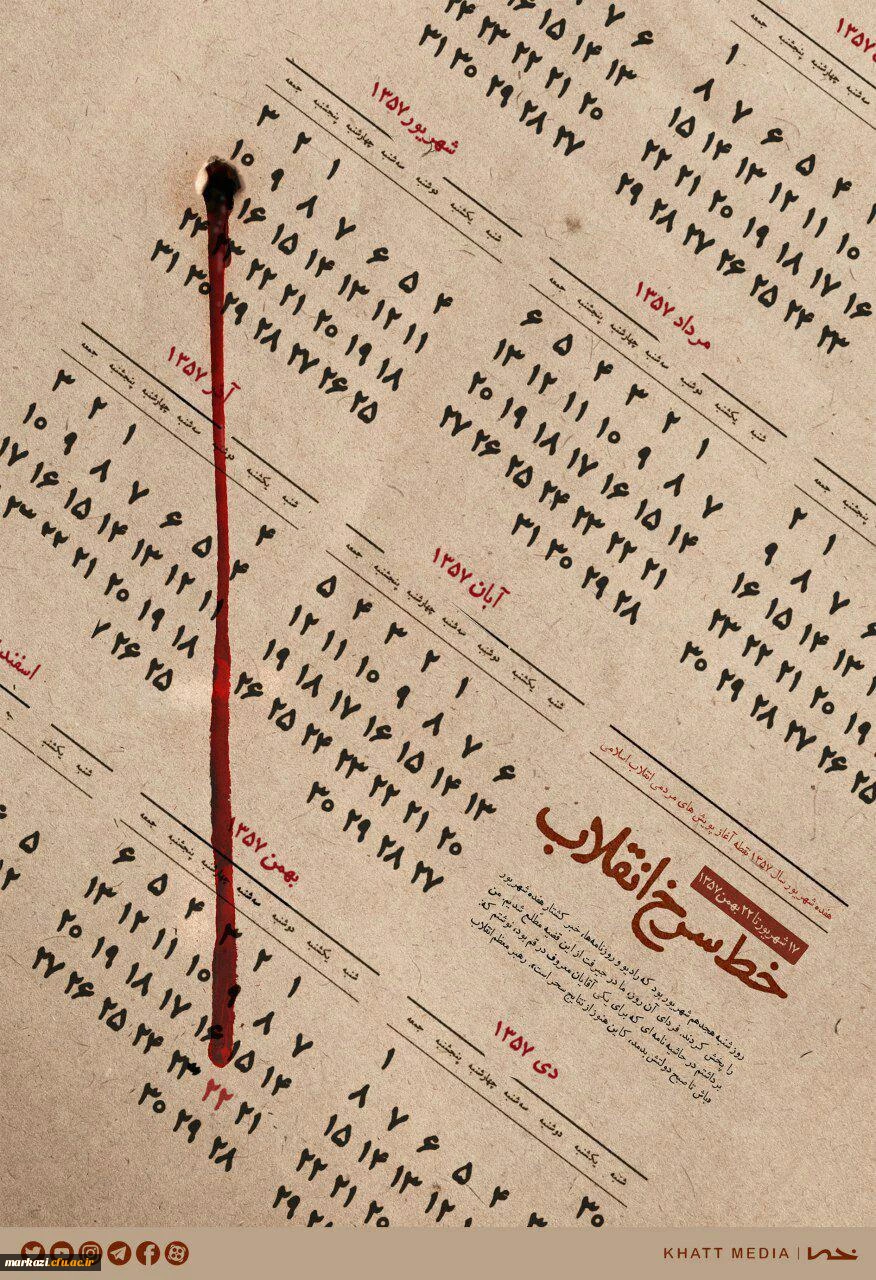 ۶ ۷
۱۳ ۱۴ ۱۵
۲۰ ۲۱ ۲۲ ۲۳ ۲۴
۲۷ ۲۸ ۲۹ ۳۰ ۳۱
۱۳۵۷
چهارشنبه پنجشنبه جمعه
۱
۴ ۵ ۶ ۷ ۸
۱۰ ۱۱ ۱۲ ۱۳ ۱۴ ۱۵
۱۶ ۱۷ ۱۸ ۱۹ ۲۰ ۲۱ ۲۲
۲۳ ۲۴ ۲۵ ۲۶ ۲۷ ۲۸ ۲۹
شهریور ۱۳۵۷
شنبه یکشنبه دوشنبه سه‌شنبه چهارشنبه پنجشنبه جمعه
۱ ۲ ۳
۴ ۵ ۶ ۷ ۸ ۹ ۱۰
۱۱ ۱۲ ۱۳ ۱۴ ۱۵ ۱۶
۱۸ ۱۹ ۲۰ ۲۱ ۲۲ ۲۳ ۲۴
۲۵ ۲۶ ۲۷ ۲۸ ۲۹ ۳۰ ۳۱
مرداد ۱۳۵۷
شنبه یکشنبه دوشنبه سه‌شنبه چهارشنبه پنجشنبه جمعه
۱ ۲ ۳ ۴ ۵ ۶
۷ ۸ ۹ ۱۰ ۱۱ ۱۲ ۱۳
۱۴ ۱۵ ۱۶ ۱۷ ۱۸ ۱۹ ۲۰
۲۱ ۲۲ ۲۳ ۲۴ ۲۵ ۲۶ ۲۷
۲۸ ۲۹ ۳۰ ۳۱
پنجشنبه جمعه
۱ ۲
۶ ۷ ۸ ۹
۱۳ ۱۴ ۱۵ ۱۶
۱۹ ۲۰ ۲۱ ۲۲ ۲۳
۲۵ ۲۶ ۲۷ ۲۸ ۲۹ ۳۰
آذر ۱۳۵۷
شنبه یکشنبه دوشنبه سه‌شنبه چهارشنبه پنجشنبه جمعه
۱ ۲ ۳
۴ ۵ ۶ ۷ ۸ ۹ ۱۰
۱۱ ۱۲ ۱۳ ۱۴ ۱۵ ۱۶ ۱۷
۱۸ ۱۹ ۲۰ ۲۱ ۲۲ ۲۳
۲۵ ۲۶ ۷
آبان ۱۳۵۷
شنبه یکشنبه دوشنبه سه‌شنبه چهارشنبه پنجشنبه جمعه
۱ ۲ ۳ ۴ ۵
۶ ۷ ۸ ۹ ۱۰ ۱۱ ۱۲
۱۳ ۱۴ ۱۵ ۱۶ ۱۷ ۱۸ ۱۹
۲۰ ۲۱ ۲۲ ۲۳ ۲۴ ۲۵ ۲۶
۲۷ ۲۸ ۲۹ ۳۰
اسفند
شنبه یکشنبه
۵
۱۲
بهمن ۱۳۵۷
شنبه یکشنبه دوشنبه سه‌شنبه چهارشنبه پنجشنبه جمعه
۱ ۲ ۳ ۴ ۵ ۶
۷ ۸ ۹ ۱۰ ۱۱ ۱۲ ۱۳
۱۴ ۱۵ ۱۶ ۱۷ ۱۸ ۱۹ ۲۰
۲۱ ۲۲ ۲۳ ۲۴ ۲۵ ۲۶ ۲۷
۲۸ ۲۹ ۳۰
دی ۱۳۵۷
شنبه یکشنبه دوشنبه سه‌شنبه چهارشنبه پنجشنبه جمعه
۱
۴ ۵ ۶ ۷ ۸
۱۲ ۱۳ ۱۴ ۱۵
۲۰ ۲۱ ۲۲
۲۹
۳۰
هفده شهریور سال ۱۳۵۷ نقطه آغاز یورش های مردمی انقلاب اسلامی
۱۷ شهریور تا ۲۲ بهمن ۱۳۵۷
خط سرخ انقلاب
روز شنبه هجدهم شهریور بود که رادیو و روزنامه‌ها، خبر کشتار هفده شهریور
را پخش کردند. فردای آن روز، ما در جیرفت از این قضیه مطلع شدیم. من
برداشتم در حاشیه نامه‌ای که برای یکی آقایان معروف در قم بوده نوشتم که:
«باش تا صبح دولتش بدمد، کاین هنوز از نتایج سحر است». رهبر معظم انقلاب
markazi.cfu.ac.ir
KHATT MEDIA | خط